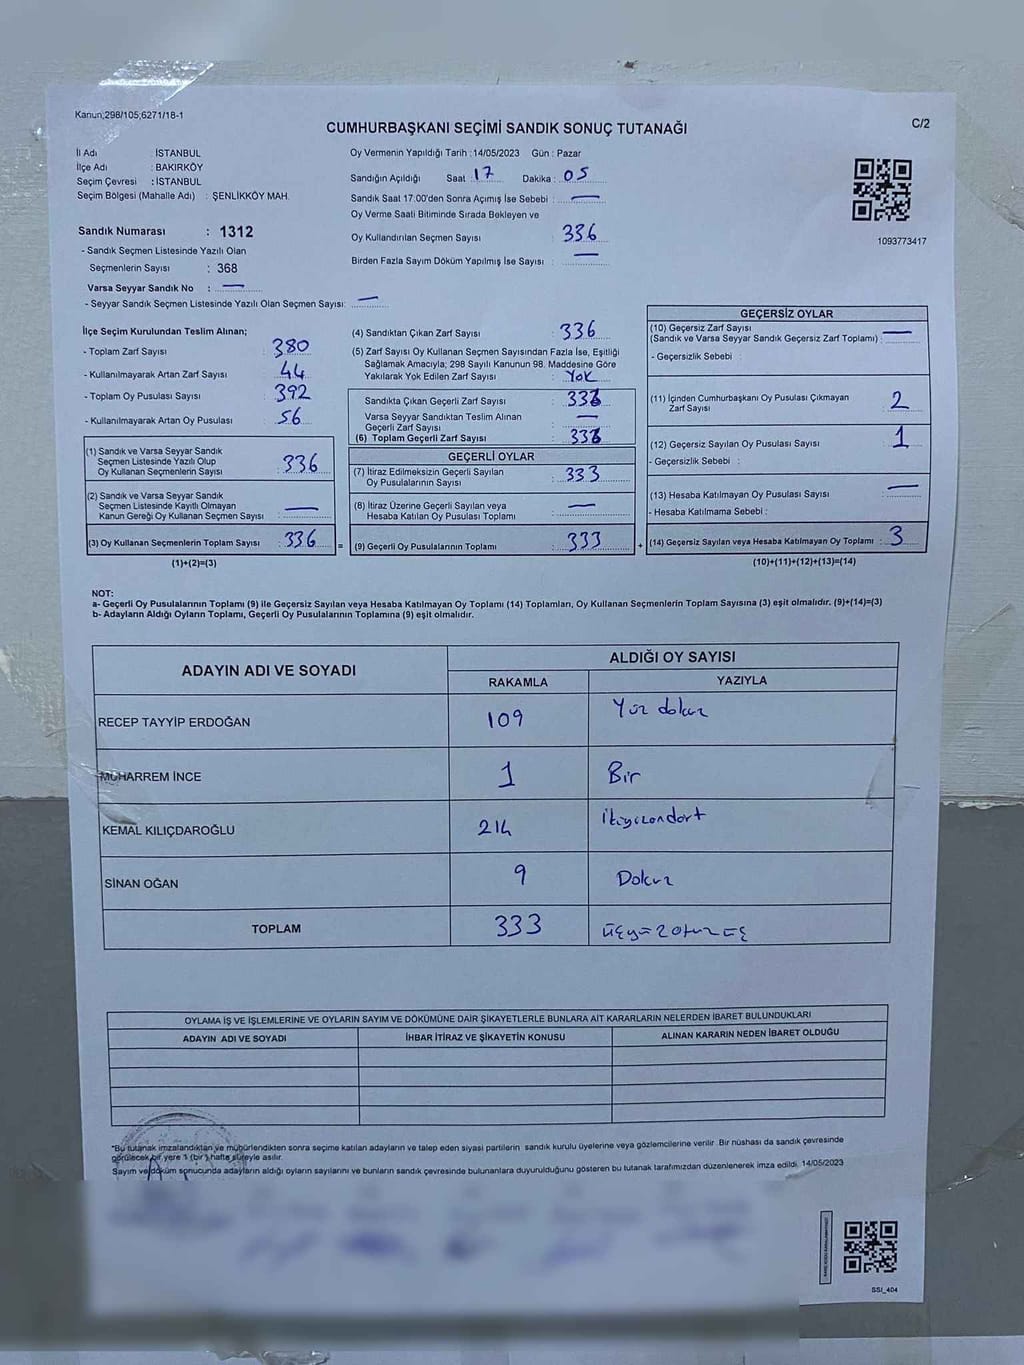 Kanun;298/105;6271/18-1
CUMHURBAŞKANI SEÇİMİ SANDIK SONUÇ TUTANAĞI
C/2
İl Adı İSTANBUL
İlçe Adı : BAKIRKÖY
Seçim Çevresi : İSTANBUL
Seçim Bölgesi (Mahalle Adı) : ŞENLİKKÖY MAH.
Oy Vermenin Yapıldığı Tarih : 14/05/2023 Gün : Pazar
Sandığın Açıldığı Saat : 17 Dakika : 05
Sandık Saat 17:00'den Sonra Açımış İse Sebebi : —
Oy Verme Saati Bitiminde Sırada Bekleyen ve
Oy Kullandırılan Seçmen Sayısı : 336
Birden Fazla Sayım Döküm Yapılmış İse Sayısı : —
1093773417
Sandık Numarası : 1312
- Sandık Seçmen Listesinde Yazılı Olan
Seçmenlerin Sayısı : 368
Varsa Seyyar Sandık No : —
- Seyyar Sandık Seçmen Listesinde Yazılı Olan Seçmen Sayısı: —
İlçe Seçim Kurulundan Teslim Alınan;
- Toplam Zarf Sayısı : 380
- Kullanılmayarak Artan Zarf Sayısı : 44
- Toplam Oy Pusulası Sayısı : 392
- Kullanılmayarak Artan Oy Pusulası : 56
(1) Sandık ve Varsa Seyyar Sandık
Seçmen Listesinde Yazılı Olup
Oy Kullanan Seçmenlerin Sayısı : 336
(2) Sandık ve Varsa Seyyar Sandık
Seçmen Listesinde Kayıtlı Olmayan
Kanun Gereği Oy Kullanan Seçmen Sayısı : —
(3) Oy Kullanan Seçmenlerin Toplam Sayısı : 336
(1)+(2)=(3)
(4) Sandıktan Çıkan Zarf Sayısı : 336
(5) Zarf Sayısı Oy Kullanan Seçmen Sayısından Fazla İse, Eşitliği
Sağlamak Amacıyla; 298 Sayılı Kanunun 98. Maddesine Göre
Yakılarak Yok Edilen Zarf Sayısı : Yok
Sandıkta Çıkan Geçerli Zarf Sayısı : 336
Varsa Seyyar Sandıktan Teslim Alınan
Geçerli Zarf Sayısı : —
(6) Toplam Geçerli Zarf Sayısı : 336
GEÇERLİ OYLAR
(7) İtiraz Edilmeksizin Geçerli Sayılan
Oy Pusulalarının Sayısı : 333
(8) İtiraz Üzerine Geçerli Sayılan veya
Hesaba Katılan Oy Pusulası Toplamı : —
= (9) Geçerli Oy Pusulalarının Toplamı : 333 +
GEÇERSİZ OYLAR
(10) Geçersiz Zarf Sayısı
(Sandık ve Varsa Seyyar Sandık Geçersiz Zarf Toplamı) : —
- Geçersizlik Sebebi :
(11) İçinden Cumhurbaşkanı Oy Pusulası Çıkmayan
Zarf Sayısı : 2
(12) Geçersiz Sayılan Oy Pusulası Sayısı : 1
- Geçersizlik Sebebi :
(13) Hesaba Katılmayan Oy Pusulası Sayısı : —
- Hesaba Katılmama Sebebi :
(14) Geçersiz Sayılan veya Hesaba Katılmayan Oy Toplamı : 3
(10)+(11)+(12)+(13)=(14)
NOT:
a- Geçerli Oy Pusulalarının Toplamı (9) ile Geçersiz Sayılan veya Hesaba Katılmayan Oy Toplamı (14) Toplamları, Oy Kullanan Seçmenlerin Toplam Sayısına (3) eşit olmalıdır. (9)+(14)=(3)
b- Adayların Aldığı Oyların Toplamı, Geçerli Oy Pusulalarının Toplamına (9) eşit olmalıdır.
ADAYIN ADI VE SOYADI ALDIĞI OY SAYISI
RAKAMLA YAZIYLA
RECEP TAYYİP ERDOĞAN 109 Yüz dokuz
MUHARREM İNCE 1 Bir
KEMAL KILIÇDAROĞLU 214 İkiyüzondört
SİNAN OĞAN 9 Dokuz
TOPLAM 333 üçyüzotuzüç
OYLAMA İŞ VE İŞLEMLERİNE VE OYLARIN SAYIM VE DÖKÜMÜNE DAİR ŞİKAYETLERLE BUNLARA AİT KARARLARIN NELERDEN İBARET BULUNDUKLARI
ADAYIN ADI VE SOYADI İHBAR İTİRAZ VE ŞİKAYETİN KONUSU ALINAN KARARIN NEDEN İBARET OLDUĞU
*Bu tutanak imzalandıktan ve mühürlendikten sonra seçime katılan adayların ve talep eden siyasi partilerin sandık kurulu üyelerine veya gözlemcilerine verilir. Bir nüshası da sandık çevresinde
görülecek bir yere 1 (bir) hafta süreyle asılır.
Sayım ve döküm sonucunda adayların aldığı oyların sayılarını ve bunların sandık çevresinde bulunanlara duyurulduğunu gösteren bu tutanak tarafımızdan düzenlenerek imza edildi. 14/05/2023
SSI_404